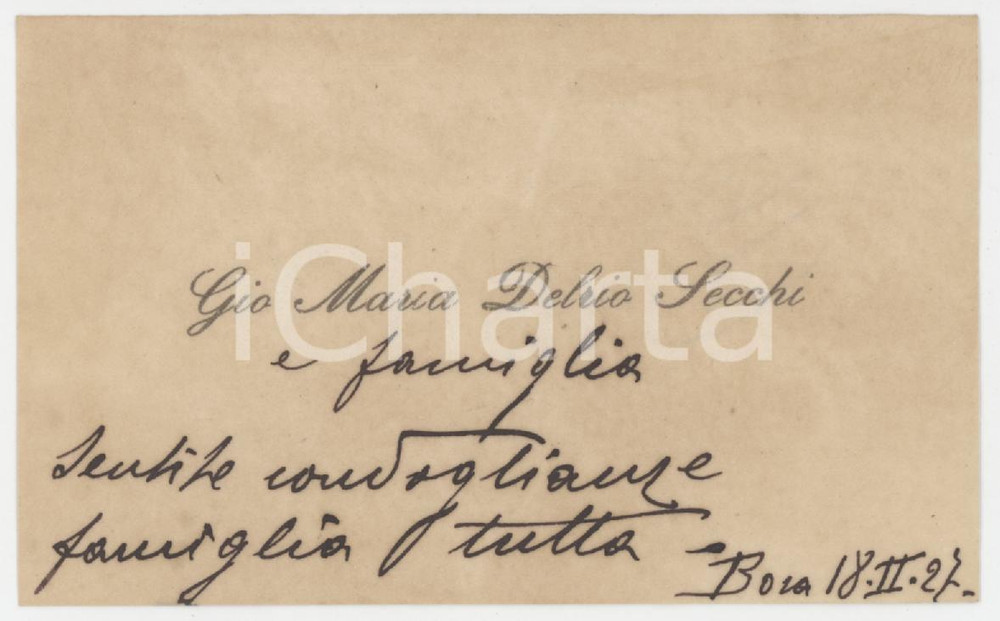 Gio Maria Delrio Secchi
e famiglia
sentite condoglianze
famiglia tutta -
Bosa 18.II.27.
iCharta